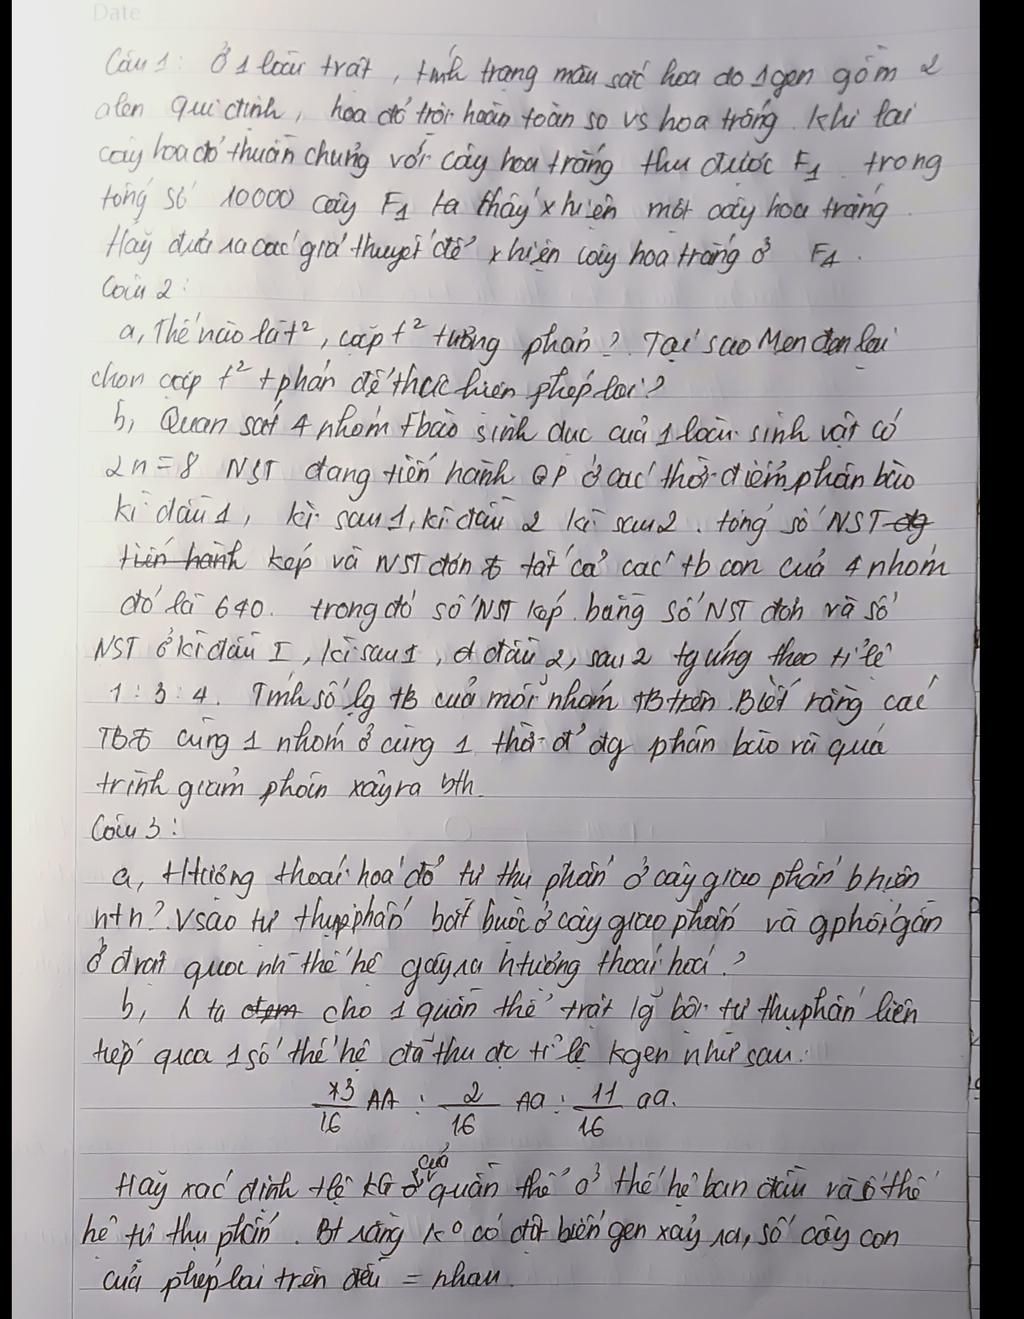 Date
Câu 1: Ở 1 loài trật, tính trạng màu sắc hoa do 1gen gồm 2
alen qui định, hoa đỏ trội hoàn toàn so vs hoa trắng. Khi lai
cây hoa đỏ thuần chủng với cây hoa trắng thu được F1. trong
tổng số 10000 cây F1 ta thấy xhiện một cây hoa trắng.
Hãy đưa ra các giả thuyết để xhiện cây hoa trắng ở F1.
Câu 2:
a, Thế nào là t², cặp t² tương phản? Tại sao Menđen lại
chọn cặp t² tphản để thực hiện phép lai?
b, Quan sát 4 nhóm tbào sinh dục của 1 loài sinh vật có
2n = 8 NST đang tiến hành GP ở các thời điểm phân bào
kì đầu 1, kì sau 1, kì đầu 2 kì sau 2. tổng số NST đg
tiến hành kép và NST đơn ở tất cả các tb con của 4 nhóm
đó là 640. trong đó số NST kép bằng số NST đơn và số
NST ở kì đầu I, kì sau 1, đầu 2, sau 2 tg ứng theo tỉ lệ
1 : 3 : 4. Tính số lg tB của mỗi nhóm TB trên. Biết rằng các
TB cùng 1 nhóm ở cùng 1 thời đ' đg phân bào và quá
trình giảm phân xảy ra bth.
Câu 3:
a, Htượng thoái hoá do tự thụ phấn ở cây giao phấn bhiện
ntn? Vsao tự thụ phấn bắt buộc ở cây giao phấn và gphối gần
ở đvật qua nh thế hệ gây ra htượng thoái hoá?
b, N ta đem cho 1 quần thể trật lg bội tự thụ phấn liên
tiếp qua 1 số thế hệ đã thu đc tỉ lệ kgen như sau:
x3/16 AA : 2/16 Aa : 11/16 aa.
Hãy xác định tlệ KG ở của quần thể ở thế hệ ban đầu và số thế
hệ tự thụ phấn. Bt rằng k° có đột biến gen xảy ra, số cây con
của phép lai trên đều = nhau.